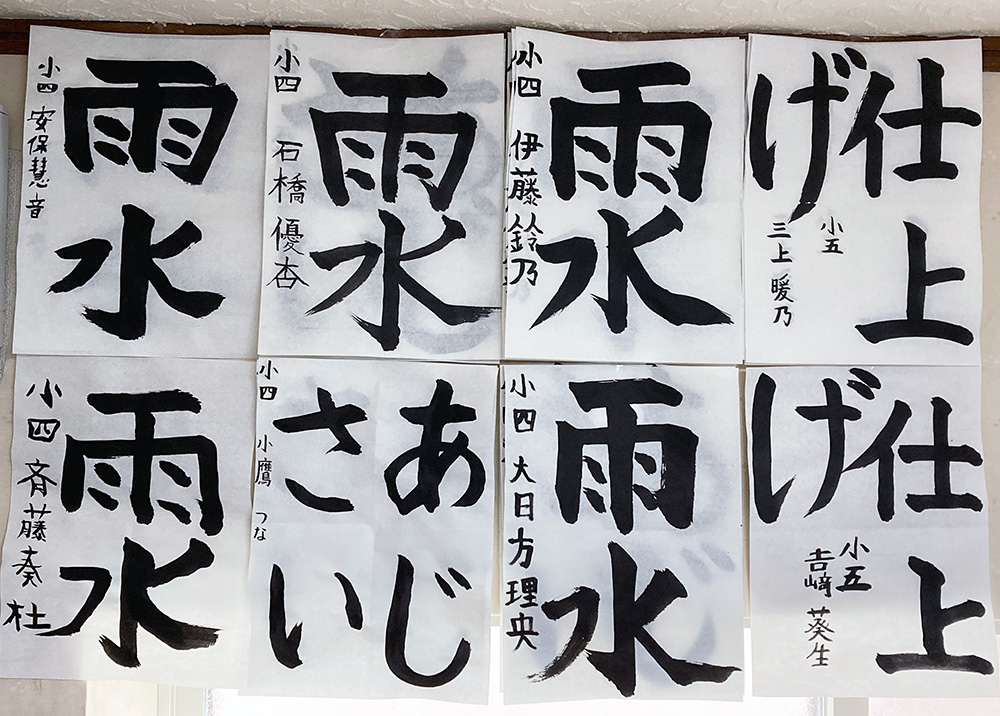 雨水
小四 安保慧音
雨水
小四 石橋優杏
雨水
小四 伊藤鈴乃
仕上
げ
小五
三上暖乃
雨水
小四 斉藤奏杜
あじ
さい
小四 小鷹つな
雨水
小四 大日方理央
仕上
げ
小五
吉﨑葵生